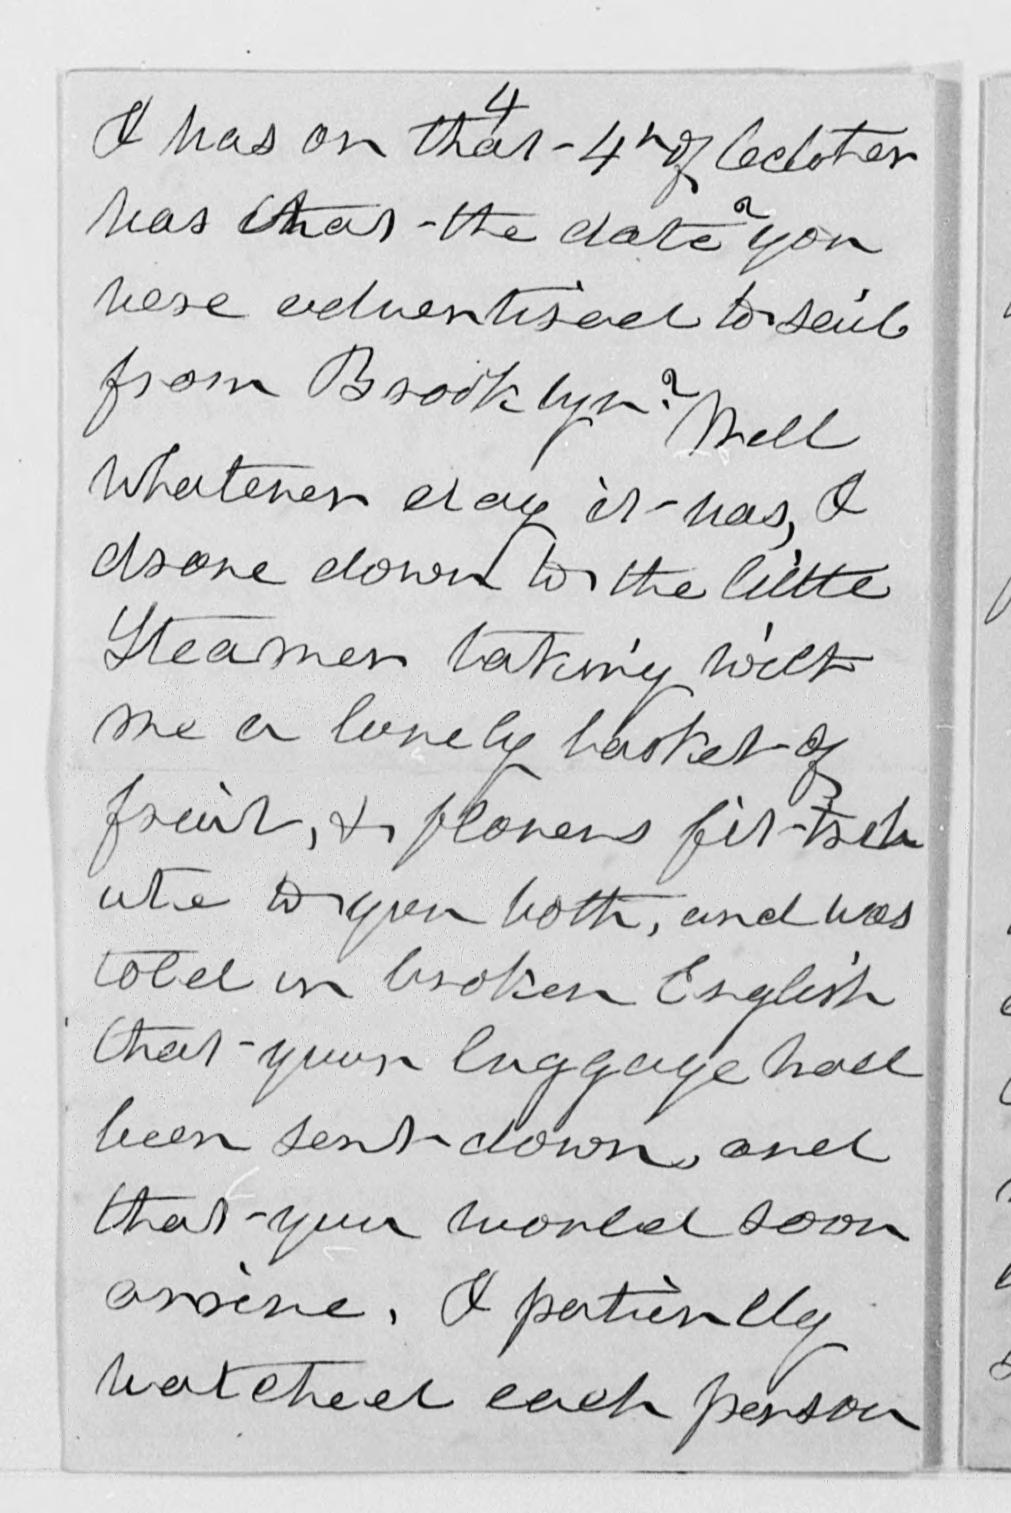 4
I was on that - 4th of October
was that - the date? you
were advertised to sail
from Brooklyn? Well
whatever day it - was, I
drove down to the little
Steamer taking with
me a lovely basket of
fruit, & flowers fit - trib
ute to you both, and was
told in broken English
that - your luggage had
been sent down, and
that - you would soon
arrive. I patiently
watched each person